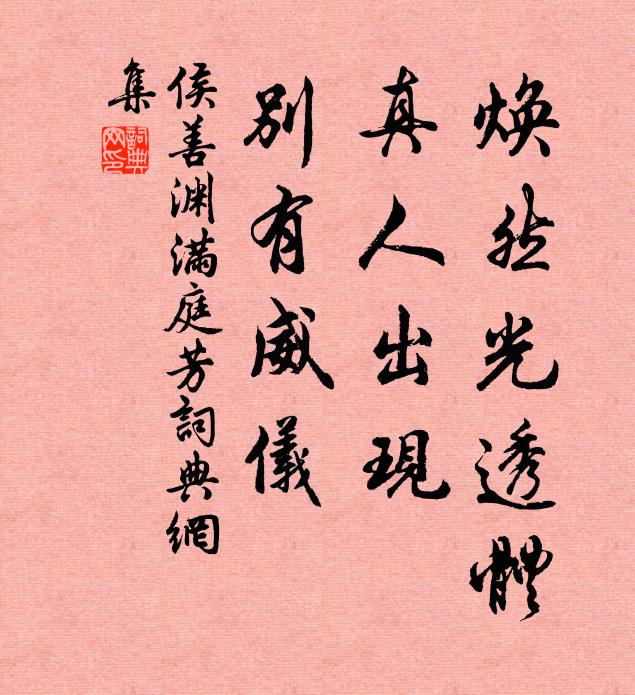 煥然光透體
真人出現
別有威儀
侯善淵滿庭芳詞典網
集
詞典
网印